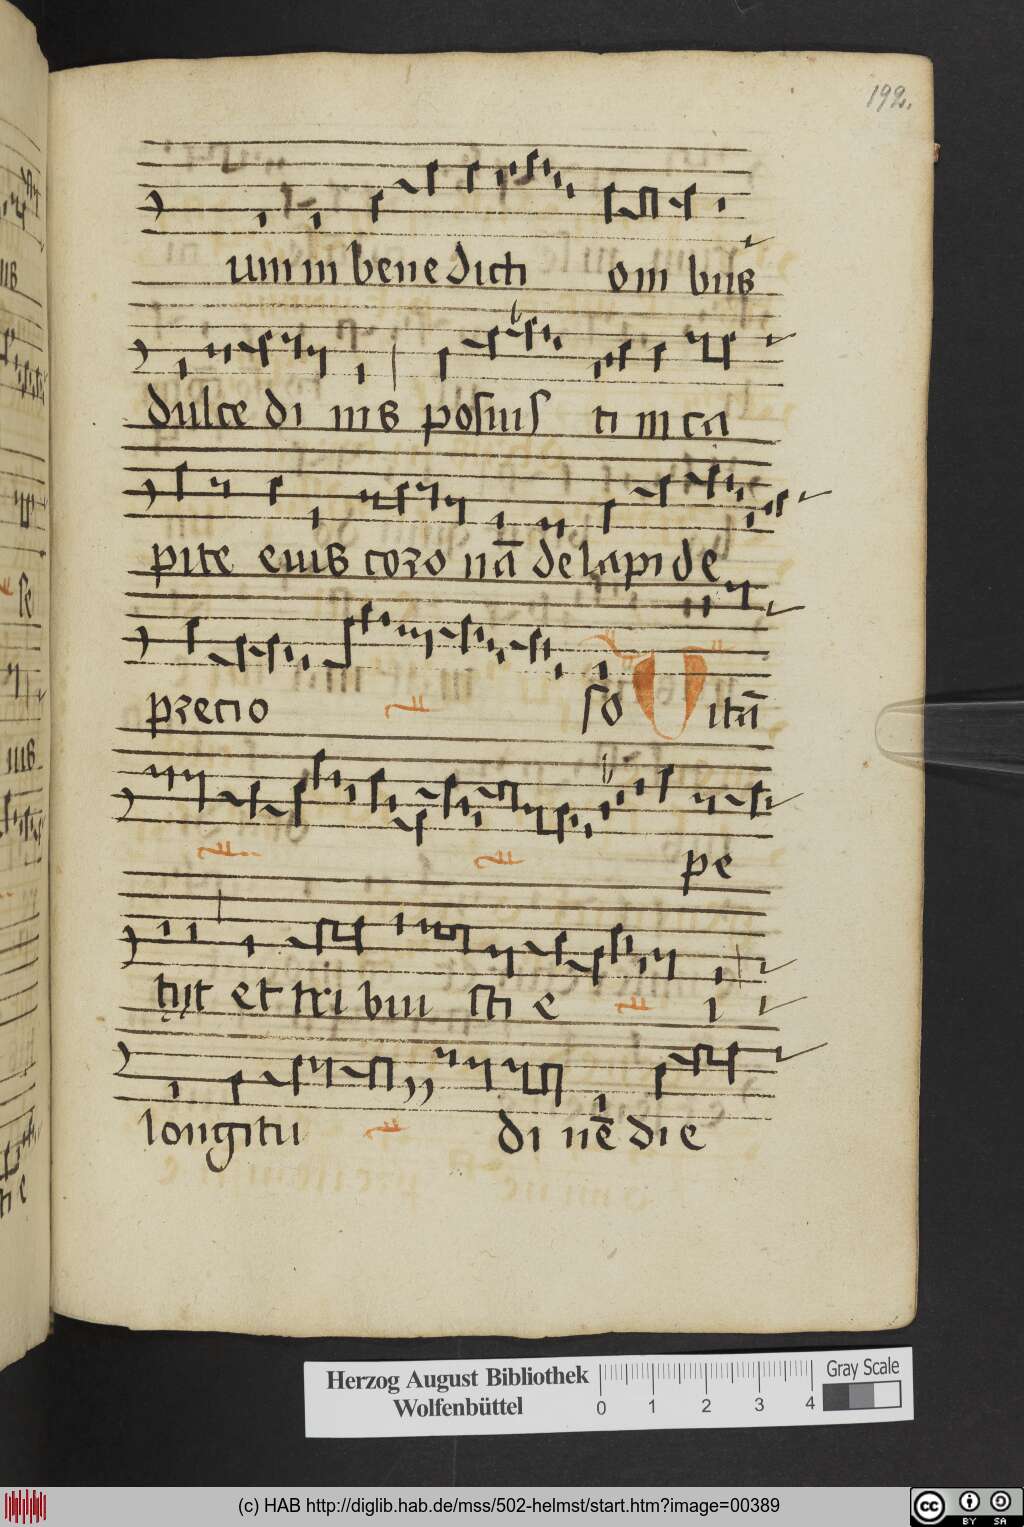 192.
um in benedicti om bus
dulcedinis posuis ti in ca
pite eius coro nā de lapide
precio so Vitā
pe
tijt et tri bui sti e
longitu di nē die
Herzog August Bibliothek
Wolfenbüttel
0 1 2 3 4
Gray Scale
(c) HAB http://diglib.hab.de/mss/502-helmst/start.htm?image=00389
cc BY SA